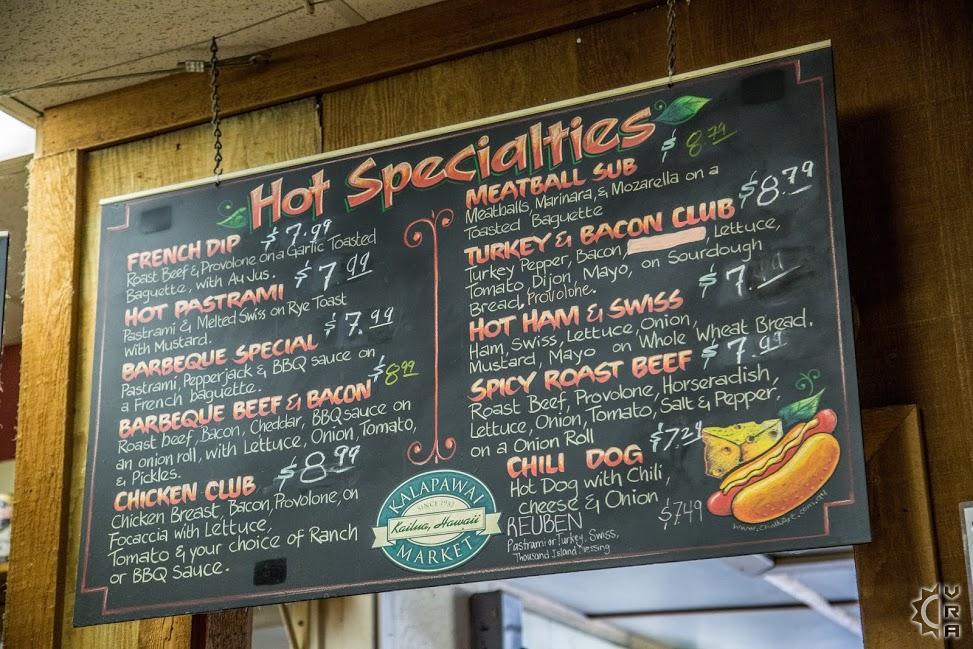 Hot Specialties
FRENCH DIP $7.99
Roast Beef & Provolone on a Garlic Toasted
Baguette, with Au Jus.
HOT PASTRAMI $7.99
Pastrami & Melted Swiss on Rye Toast
with Mustard.
BARBEQUE SPECIAL $7.99
Pastrami, Pepperjack & BBQ sauce on
a French baguette.
BARBEQUE BEEF & BACON $8.99
Roast beef, Bacon, Cheddar, BBQ sauce on
an onion roll, with Lettuce, Onion, Tomato,
& Pickles.
CHICKEN CLUB $8.99
Chicken Breast, Bacon, Provolone, on
Focaccia with Lettuce,
Tomato & your choice of Ranch
or BBQ Sauce.
MEATBALL SUB $8.79
Meatballs, Marinara, & Mozarella on a
Toasted Baguette
TURKEY & BACON CLUB $8.79
Turkey Pepper, Bacon, Lettuce,
Tomato, Dijon, Mayo, on Sourdough
Bread, Provolone.
HOT HAM & SWISS $7.
Ham, Swiss, Lettuce, Onion,
Mustard, Mayo on Whole Wheat Bread.
SPICY ROAST BEEF $7.99
Roast Beef, Provolone, Horseradish,
Lettuce, Onion, Tomato, Salt & Pepper,
on a Onion Roll
CHILI DOG $7.29
Hot Dog with Chili,
cheese & Onion
REUBEN $7.49
Pastrami or Turkey, Swiss,
Thousand Island Dressing
KALAPAWAI
SINCE 1932
Kailua, Hawaii
MARKET
VRA